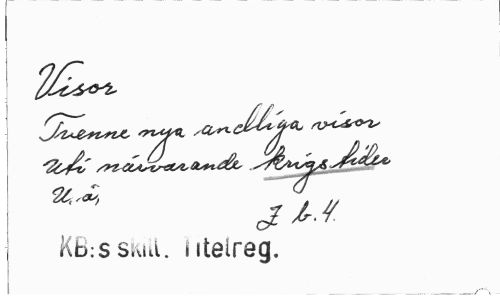 Visor
Tvenne nya andliga visor
uti närvarande krigstider
U. å,
J b. 4.
KB:s skill. Titelreg.